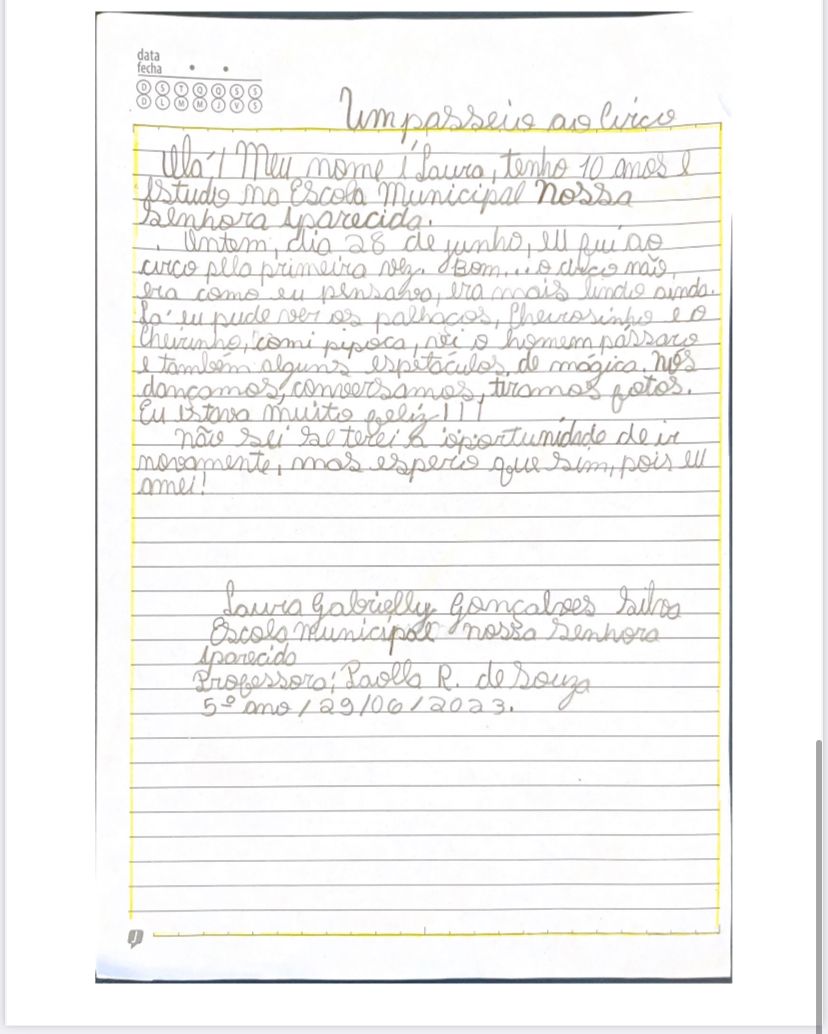 data
fecha
D S T Q Q S S
D L M M J V S
Um passeio ao Circo
Olá! Meu nome é Laura, tenho 10 anos e
Estudo na Escola Municipal Nossa
Senhora Aparecida.
Ontem, dia 28 de junho, eu fui ao
circo pela primeira vez. Bom... o circo não
era como eu pensava, era mais lindo ainda.
Lá eu pude ver os palhaços, Cheirosinho e o
Cheirinho, comi pipoca, vi o homem pássaro
e também alguns espetáculos de mágica. Nós
dançamos, conversamos, tiramos fotos.
Eu estava muito feliz!!!
Não sei se terei a oportunidade de ir
novamente, mas espero que sim, pois eu
amei!
Laura Gabrielly Gonçalves Silva
Escola Municipal Nossa Senhora
Aparecida
Professora: Paolla R. de Souza
5º ano / 29/06/2023.